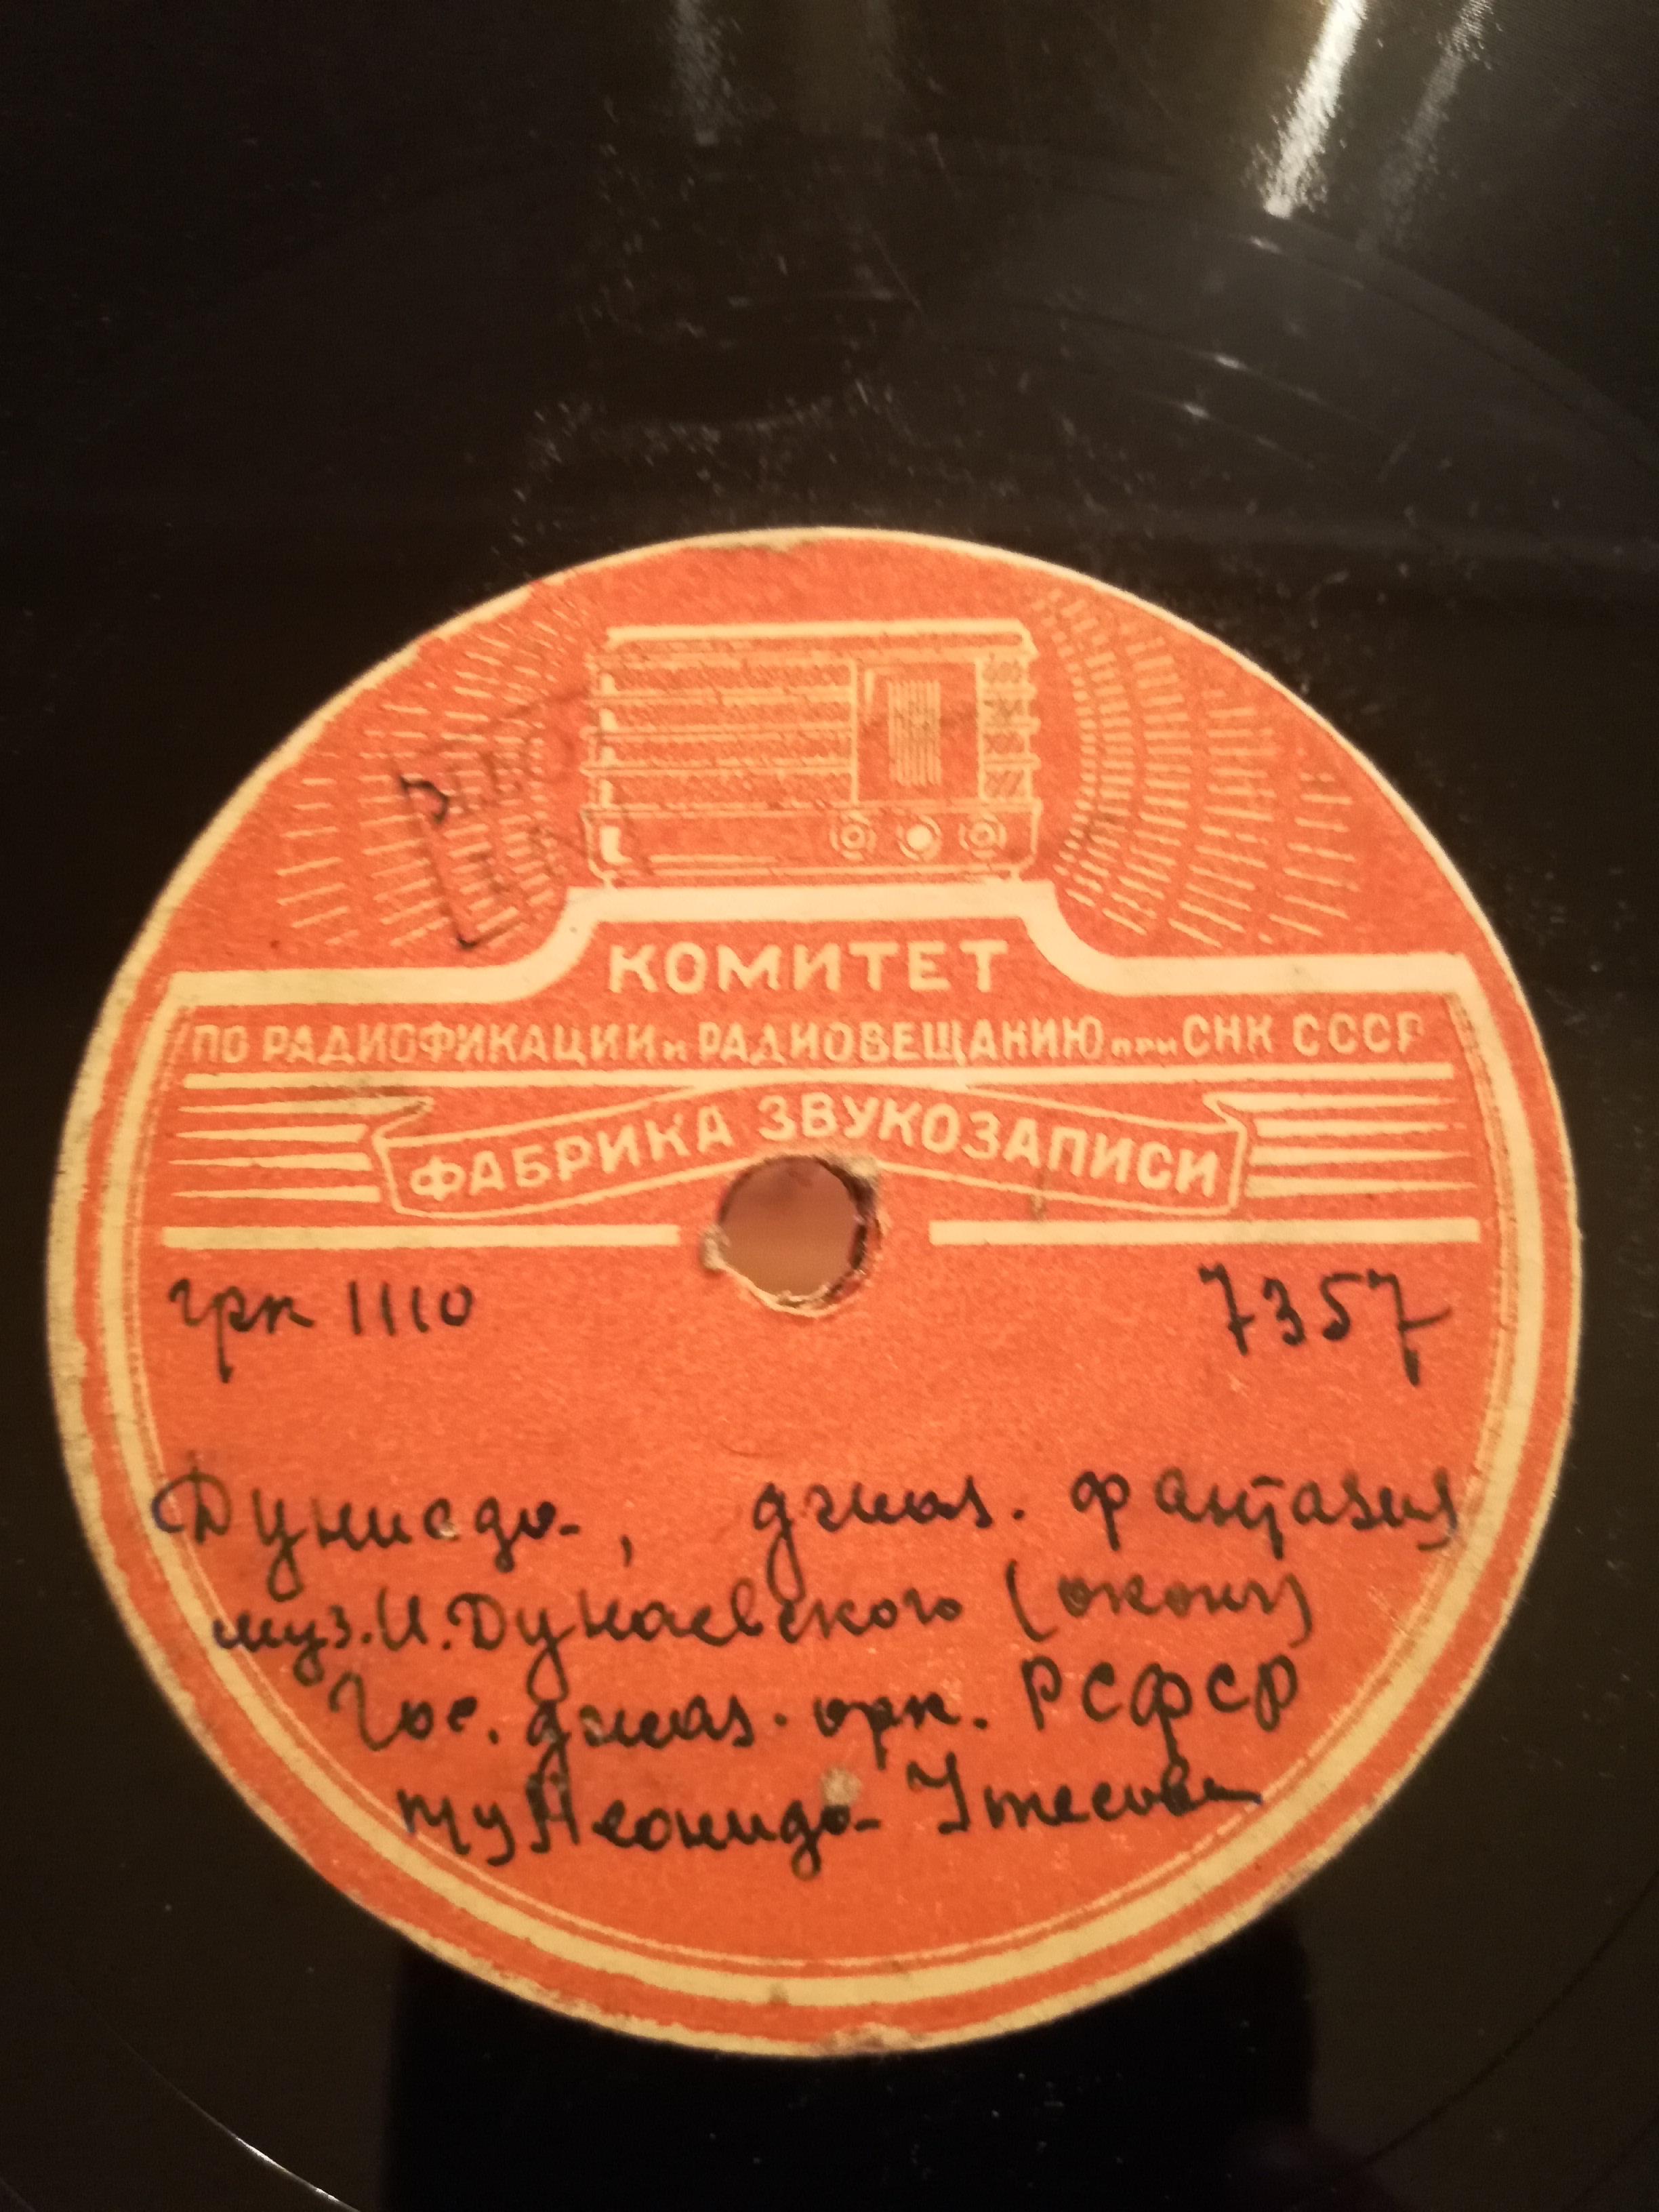 КОМИТЕТ
ПО РАДИОФИКАЦИИ и РАДИОВЕЩАНИЮ при СНК СССР
ФАБРИКА ЗВУКОЗАПИСИ
грк 1110 7357
джаз. фантазия
муз. И. Дунаевского (оконч)
Гос. джаз. орк. РСФСР
п/у Леонида Утесова